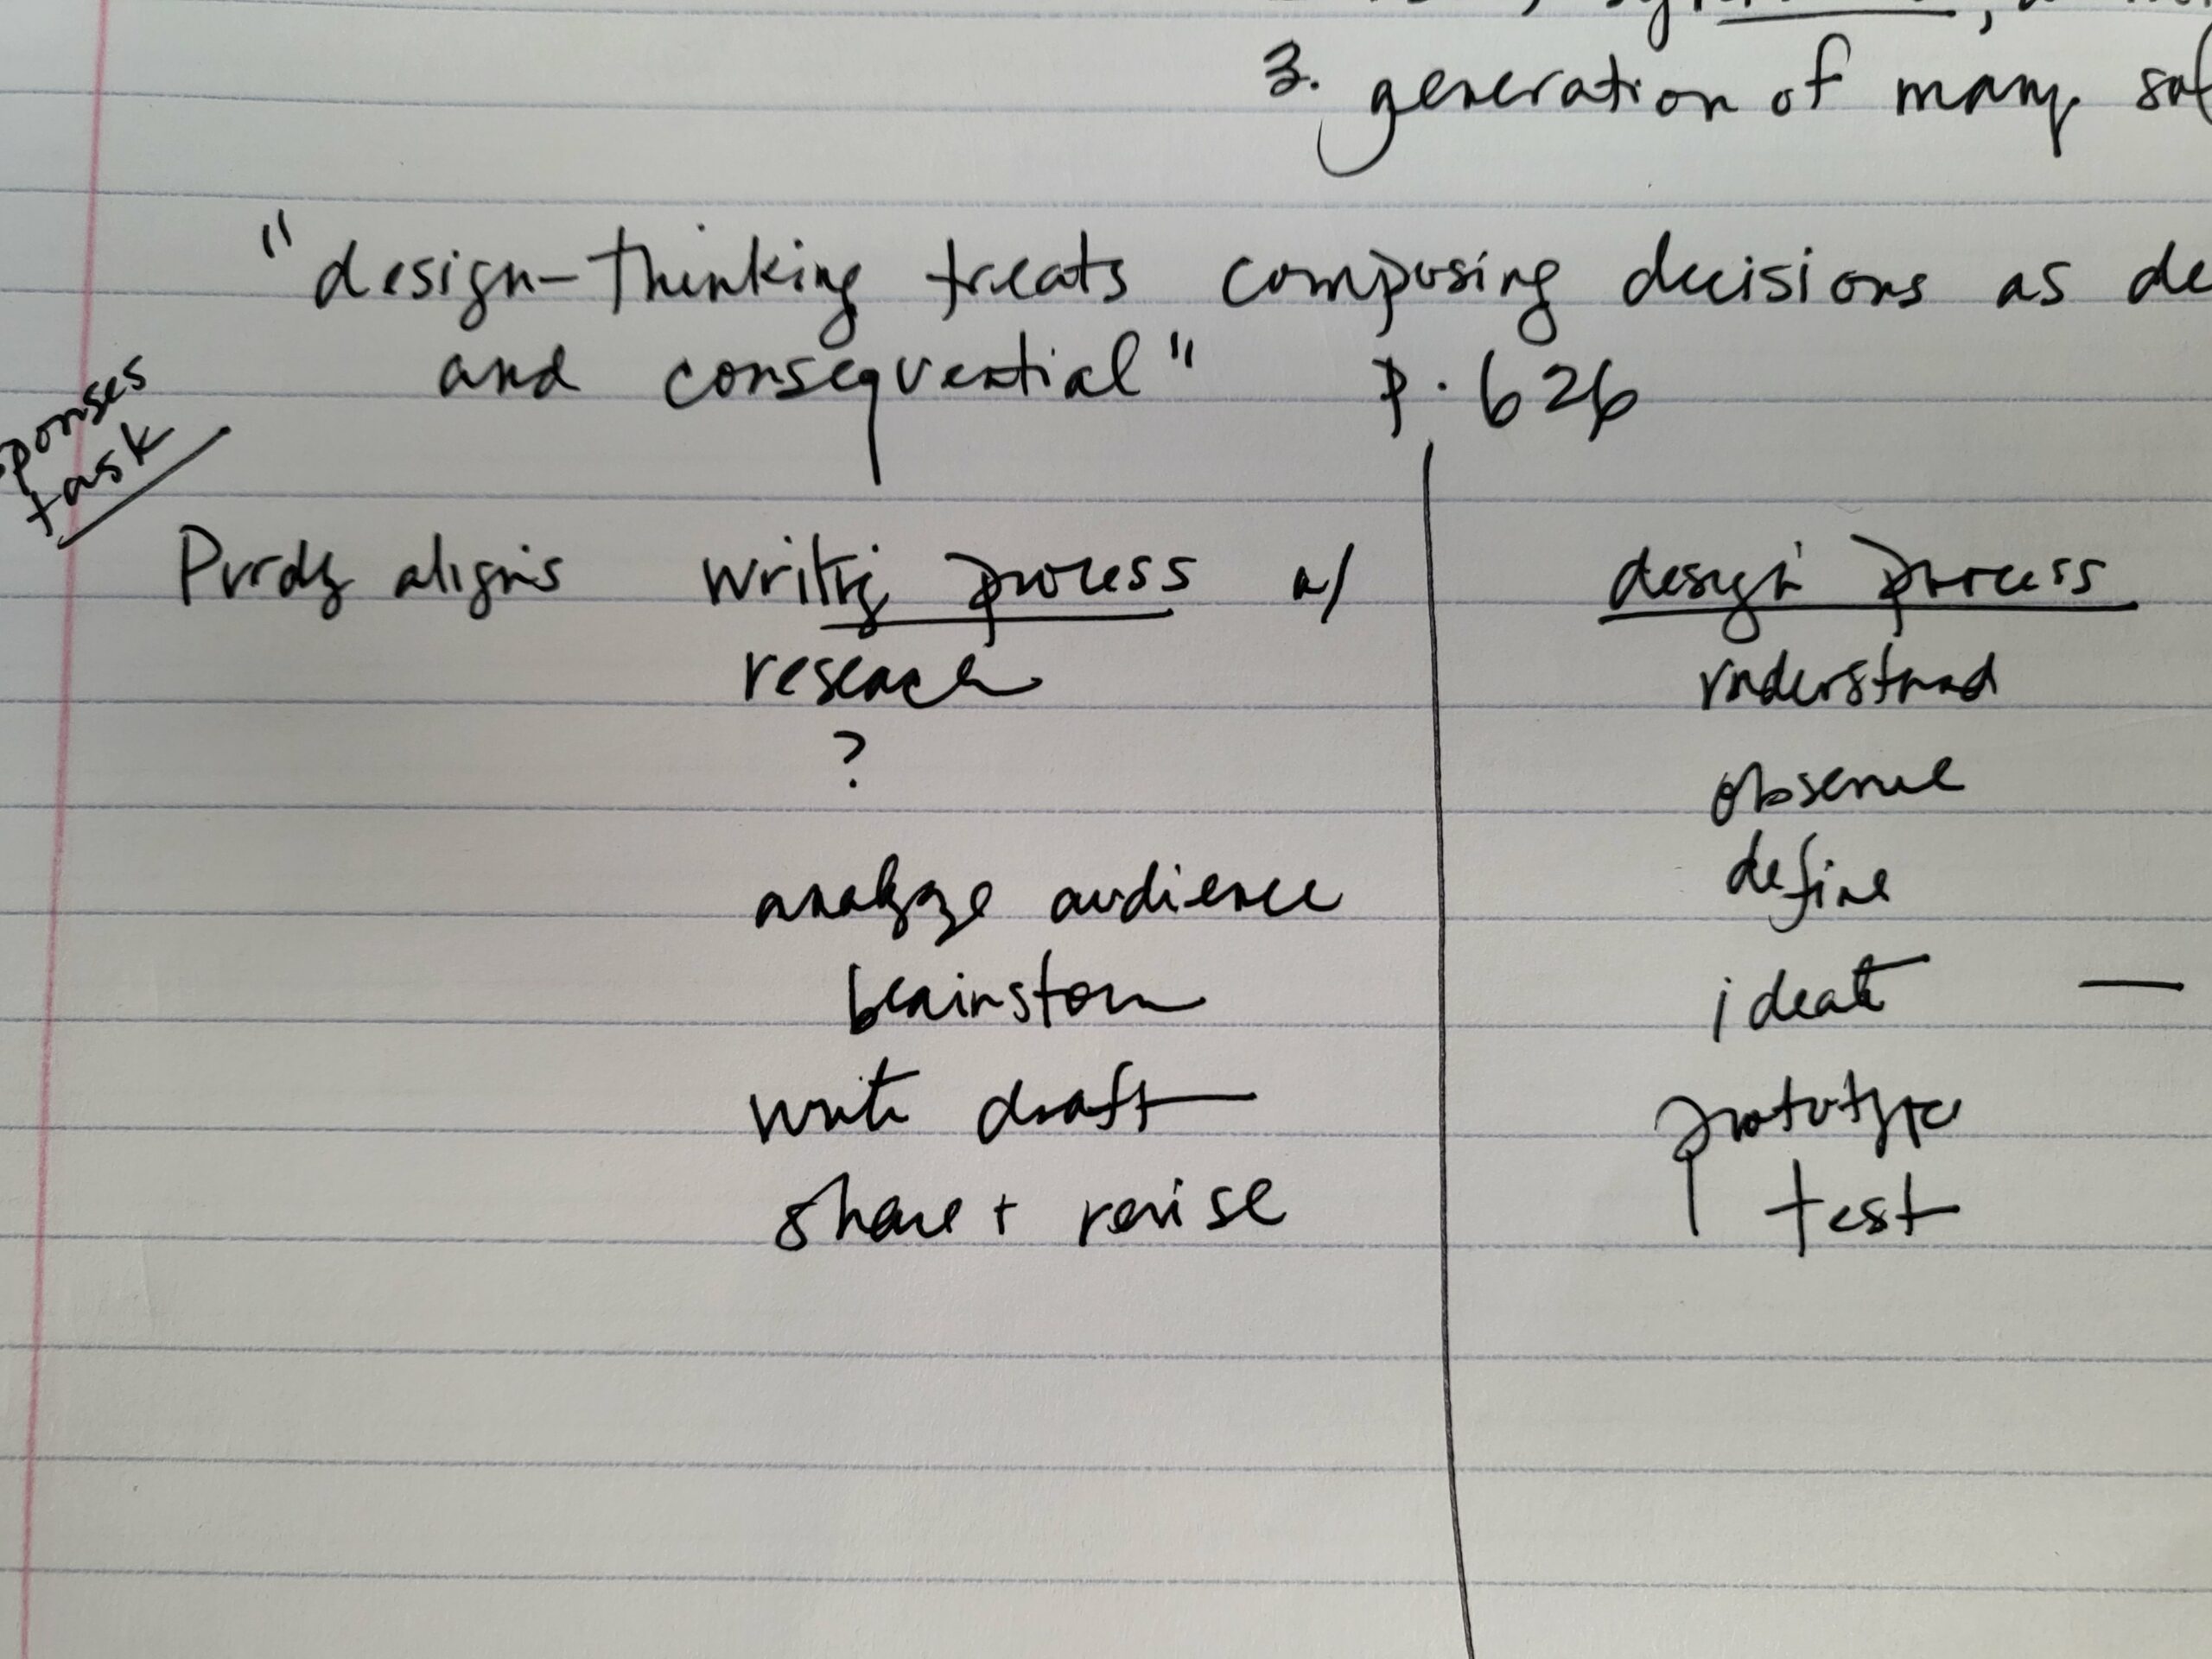 3. generation of many
"design-thinking treats composing decisions as
and consequential" p. 626
ponses
task
Purdy aligns writing process w/ design process
research understand
? observe
define
analyze audience
brainstorm ideate —
write draft prototype
share + revise test